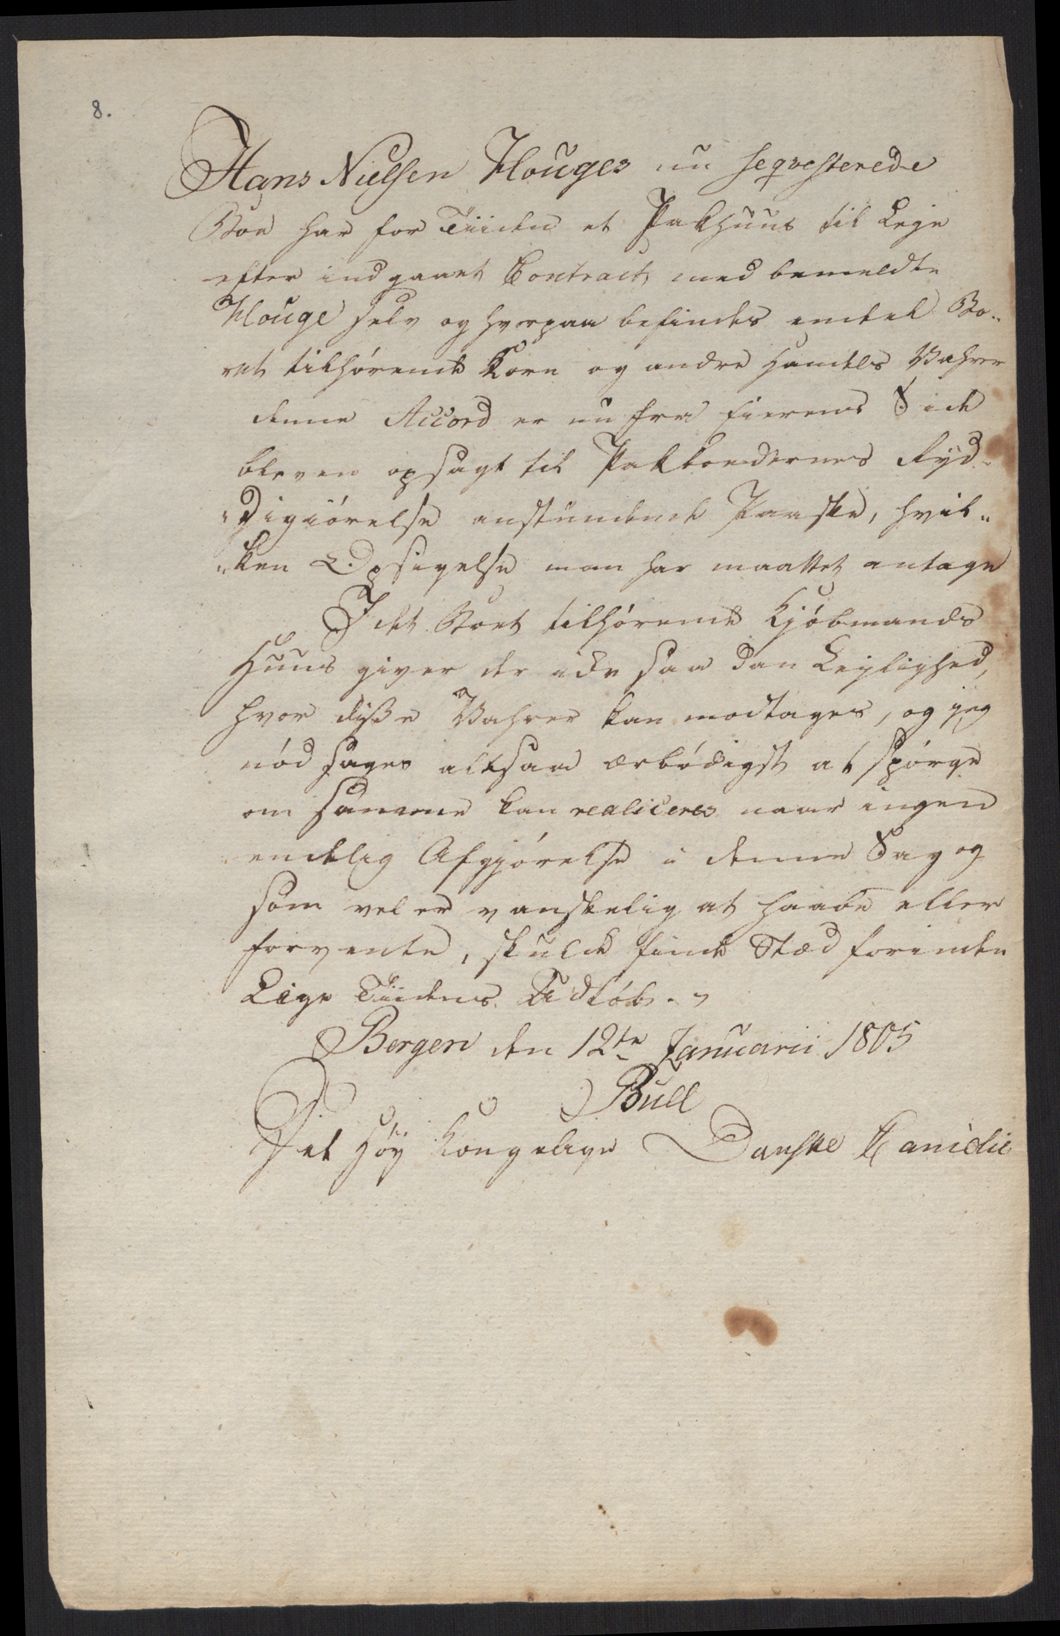 8.
Hans Nielsen Houges nu seqvesterede
Boe har for Tiiden et Pakhuus til Leje
efter indgaaet Contract med bemeldte
Houge selv og hvorpaa befindes endeel Bo-
ets tilhørende Korn og andre Handels Vahrer
denne Accord er nu fra Eierens Side
bleven opsagt til Pakboedernes Ryd-
digiørelse anstundende Paaske, hvil-
ken Opsigelse man har maattet antage
I det Boet tilhørende Kjøbmands
Huus giver der ikke saadan Leylighed,
hvor disse Vahrer kan modtages, og jeg
nødsages altsaa ærbødigst at spørge
om samme kan realiceres naar ingen
endelig Afgjørelse i denne Sag og
som vel er vanskelig at haabe eller
forvente, skulde finde Stæd forinden
Leye Tiidens Udløb.
Bergen den 12te Januarii 1805
Bull
Det Høy Kongelige Danske Cancelie